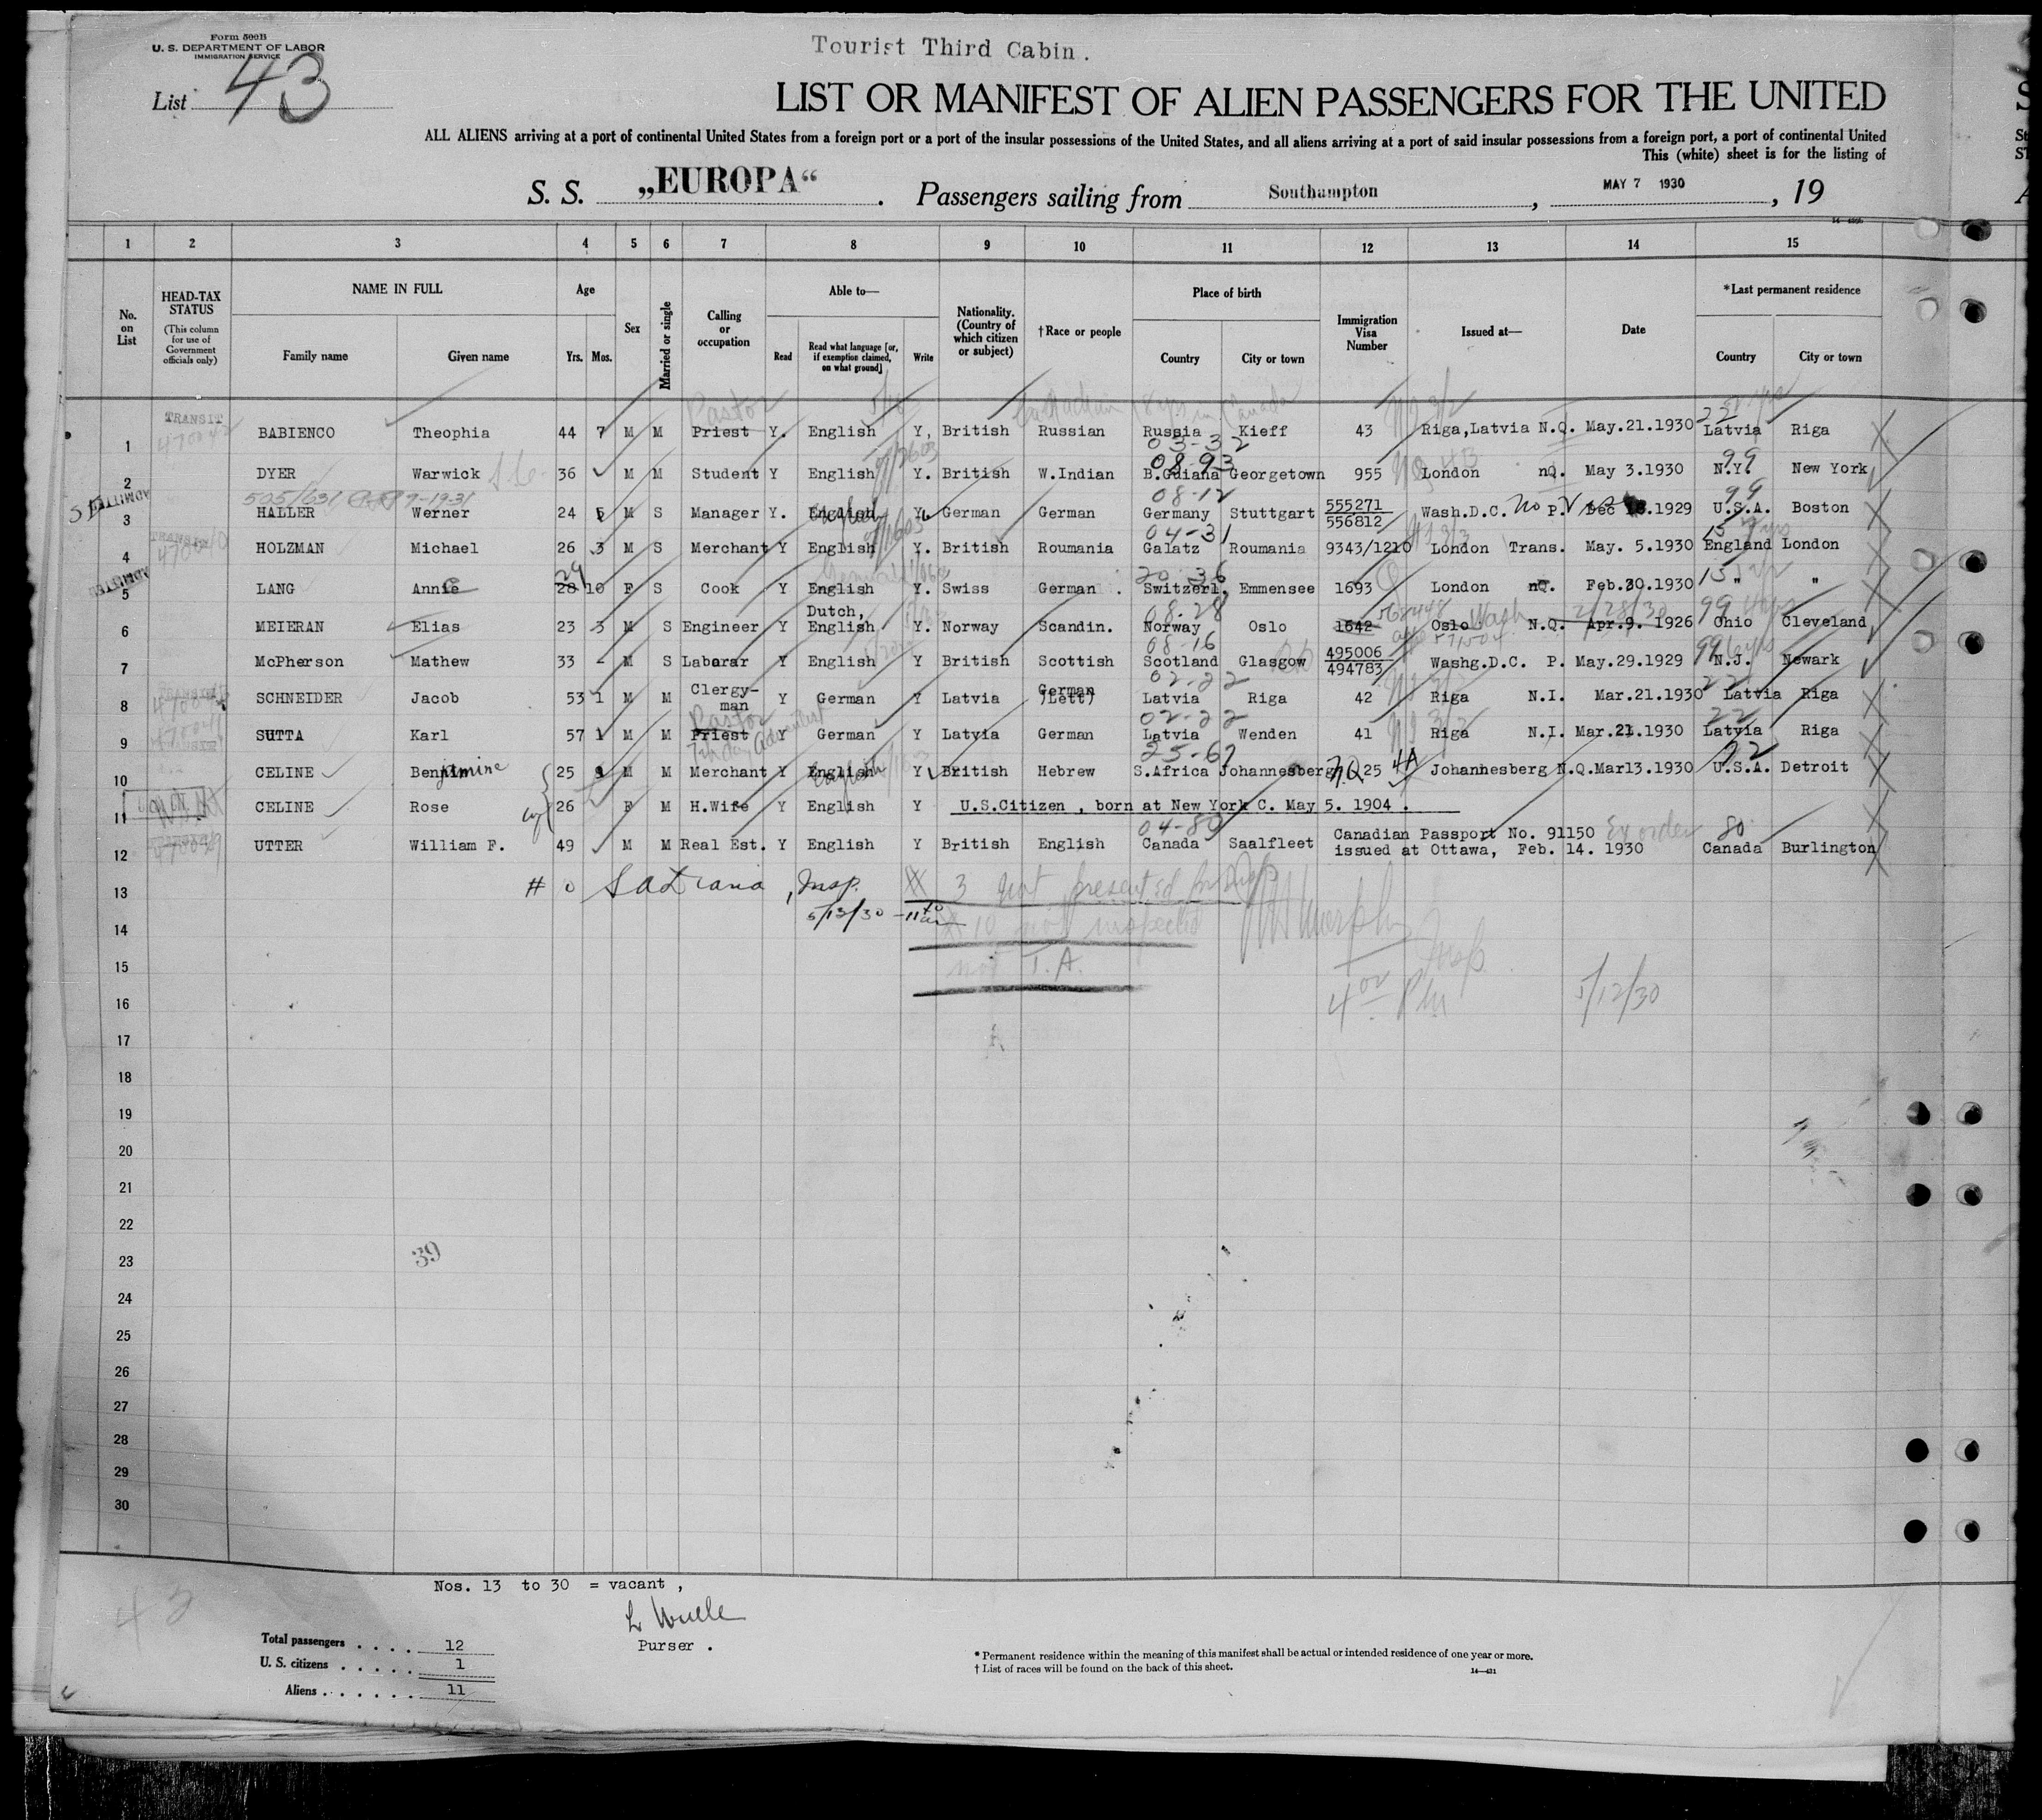 Form 500B
U. S. DEPARTMENT OF LABOR
IMMIGRATION SERVICE
Tourist Third Cabin.
List 43
LIST OR MANIFEST OF ALIEN PASSENGERS FOR THE UNITED
ALL ALIENS arriving at a port of continental United States from a foreign port or a port of the insular possessions of the United States, and all aliens arriving at a port of said insular possessions from a foreign port, a port of continental United
This (white) sheet is for the listing of
S. S. „EUROPA“. Passengers sailing from Southampton, MAY 7 1930, 19
1 2 3 4 5 6 7 8 9 10 11 12 13 14 15
No. on List
HEAD-TAX STATUS (This column for use of Government officials only)
NAME IN FULL
Family name Given name
Age
Yrs. Mos.
Sex
Married or single
Calling or occupation
Able to—
Read
Read what language [or, if exemption claimed, on what ground]
Write
Nationality. (Country of which citizen or subject)
†Race or people
Place of birth
Country City or town
Immigration Visa Number
Issued at—
Date
*Last permanent residence
Country City or town
TRANSIT Pastor
1 BABIENCO Theophia 44 7 M M Priest Y. English Y, British Russian Russia Kieff 43 Riga,Latvia N.Q. May.21.1930 Latvia Riga
03-32
08-93 99
2 DYER Warwick 36 M M Student Y English Y. British W.Indian B.Gdiana Georgetown 955 London nQ. May 3.1930 N.Y. New York
08-12 99
3 HALLER Werner 24 5 M S Manager Y. English Y. German German Germany Stuttgart 555271 556812 Wash.D.C. no P.V Dec 18.1929 U.S.A. Boston
04-31
4 HOLZMAN Michael 26 3 M S Merchant Y English Y. British Roumania Galatz Roumania 9343/1210 London Trans. May. 5.1930 England London
29 20 36
5 LANG Annie 28 10 F S Cook Y English Y. Swiss German. Switzerl. Emmensee 1693 London nQ. Feb.20.1930 " "
08-28 Wash 2/28/30 99
6 MEIERAN Elias 23 3 M S Engineer Y Dutch, English Y. Norway Scandin. Norway Oslo 1642 Oslo N.Q. Apr.9. 1926 Ohio Cleveland
08-16 99
7 McPherson Mathew 33 - M S Laborar Y English Y British Scottish Scotland Glasgow 495006 494783 Washg.D.C. P. May.29.1929 N.J. Newark
02-22 22
8 SCHNEIDER Jacob 53 1 M M Clergy-man Y German Y Latvia German (Lett) Latvia Riga 42 Riga N.I. Mar.21.1930 Latvia Riga
Pastor 02-22 22
9 SUTTA Karl 57 1 M M Priest Y German Y Latvia German Latvia Wenden 41 Riga N.I. Mar.21.1930 Latvia Riga
7th day Adventist 25-67
10 CELINE Benjamine 25 9 M M Merchant Y English Y British Hebrew S.Africa Johannesberg n.Q 25 4A Johannesberg N.Q.Mar13.1930 U.S.A. Detroit
11 CELINE Rose 26 F M H.Wife Y English Y U.S.Citizen , born at New York C. May 5. 1904 .
04-80 80
12 UTTER William F. 49 M M Real Est. Y English Y British English Canada Saalfleet Canadian Passport No. 91150 issued at Ottawa, Feb. 14. 1930 Canada Burlington
13 Insp. 3 not presented
5/13/30
14 10 not inspected
15 not T.A. Insp
16 4 00 PM 5/12/30
17
18
19
20
21
22
23 39
24
25
26
27
28
29
30
Nos. 13 to 30 = vacant ,
Purser .
Total passengers . . . . 12
U. S. citizens . . . . . 1
Aliens . . . . . . 11
* Permanent residence within the meaning of this manifest shall be actual or intended residence of one year or more.
† List of races will be found on the back of this sheet.
14—431